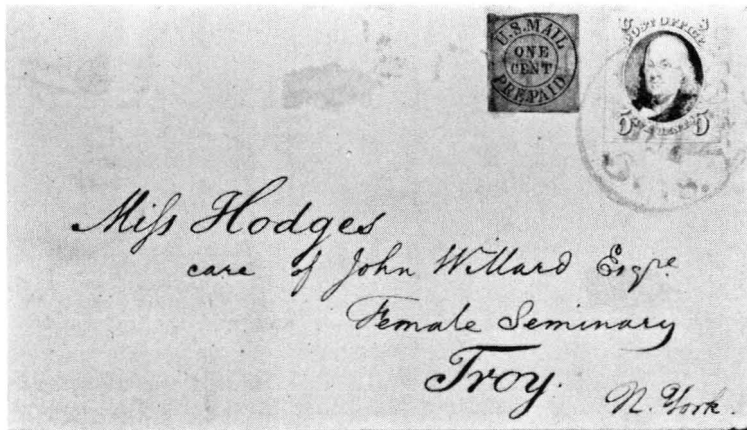 U.S. MAIL
ONE
CENT
PREPAID.
U S
POST OFFICE
5 5
Miss Hodges
care of John Willard Esqre
Female Seminary
Troy.
N. York.